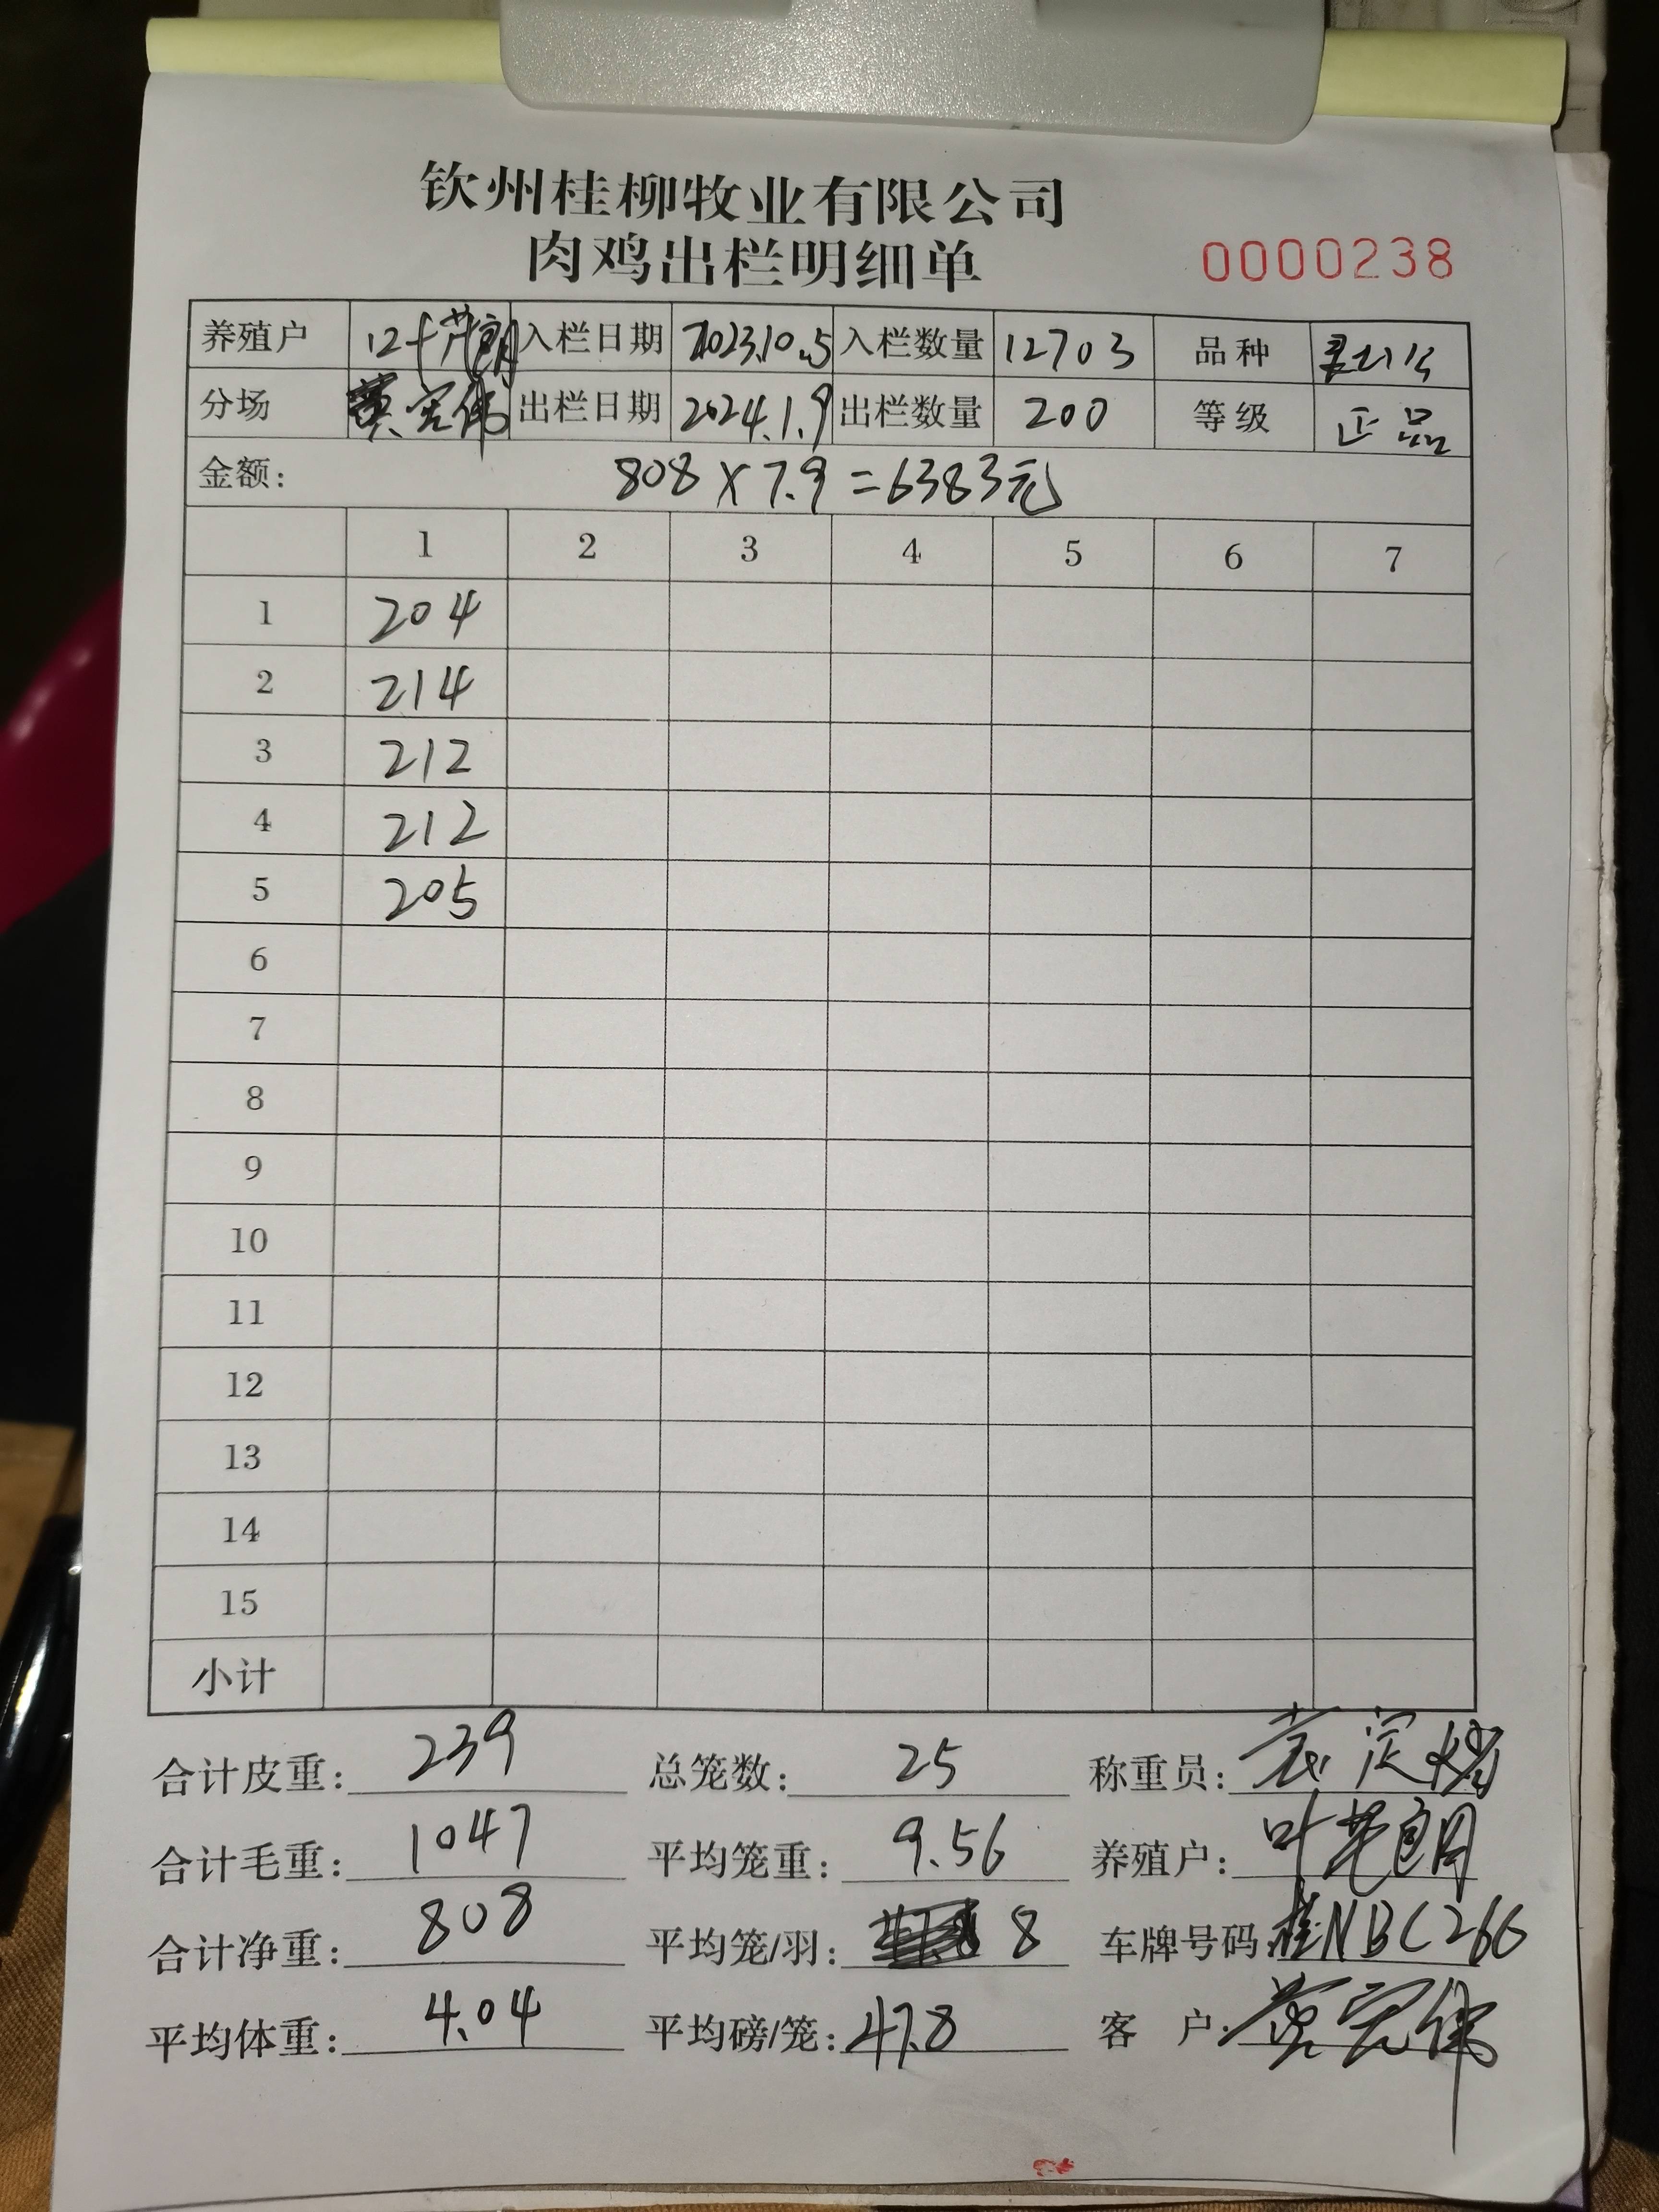 钦州桂柳牧业有限公司
肉鸡出栏明细单 0000238
养殖户 叶茂朗 入栏日期 2023.10.5 入栏数量 12703 品种
分场 黄宏伟 出栏日期 2024.1.9 出栏数量 200 等级 正品
金额: 808×7.9=6383元
1 2 3 4 5 6 7
1 204
2 214
3 212
4 212
5 205
6
7
8
9
10
11
12
13
14
15
小计
合计皮重: 239 总笼数: 25 称重员:
合计毛重: 1047 平均笼重: 9.56 养殖户: 叶茂朗
合计净重: 808 平均笼/羽: 8 车牌号码: 桂NBC266
平均体重: 4.04 平均磅/笼: 41.8 客 户: 黄宏伟